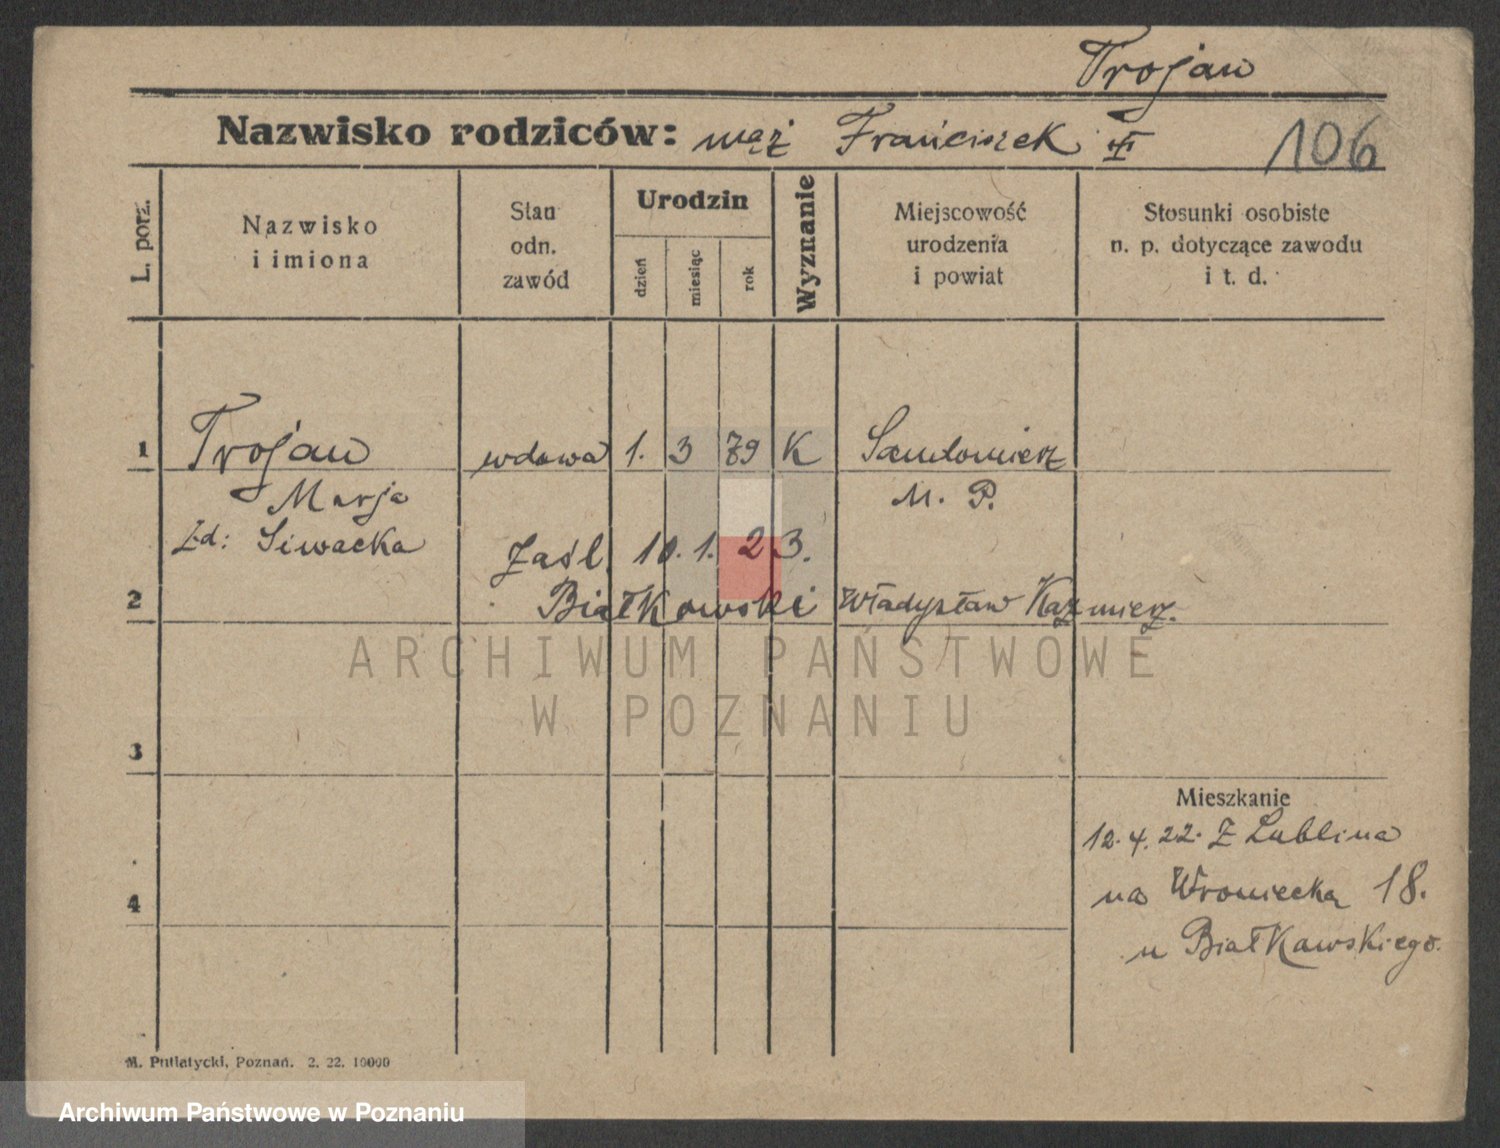 Trojan
Nazwisko rodziców: mąż Franciszek
106
L. porz.
Nazwisko
i imiona
Stan
odn.
zawód
Urodzin
dzień
miesiąc
rok
Wyznanie
Miejscowość
urodzenia
i powiat
Stosunki osobiste
n. p. dotyczące zawodu
i t. d.
1 Trojan wdowa 1. 3 79 K Sandomierz
Marja M. P.
Zd: Siwacka
Zaśl. 10. 1. 23.
2 Białkowski Władysław Kazmierz.
ARCHIWUM PAŃSTWOWE
W POZNANIU
3
Mieszkanie
12. 4. 22. Z Lublina
4 na Wroniecką 18.
u Białkowskiego.
M. Putiatycki, Poznań. 2. 22. 10000
Archiwum Państwowe w Poznaniu